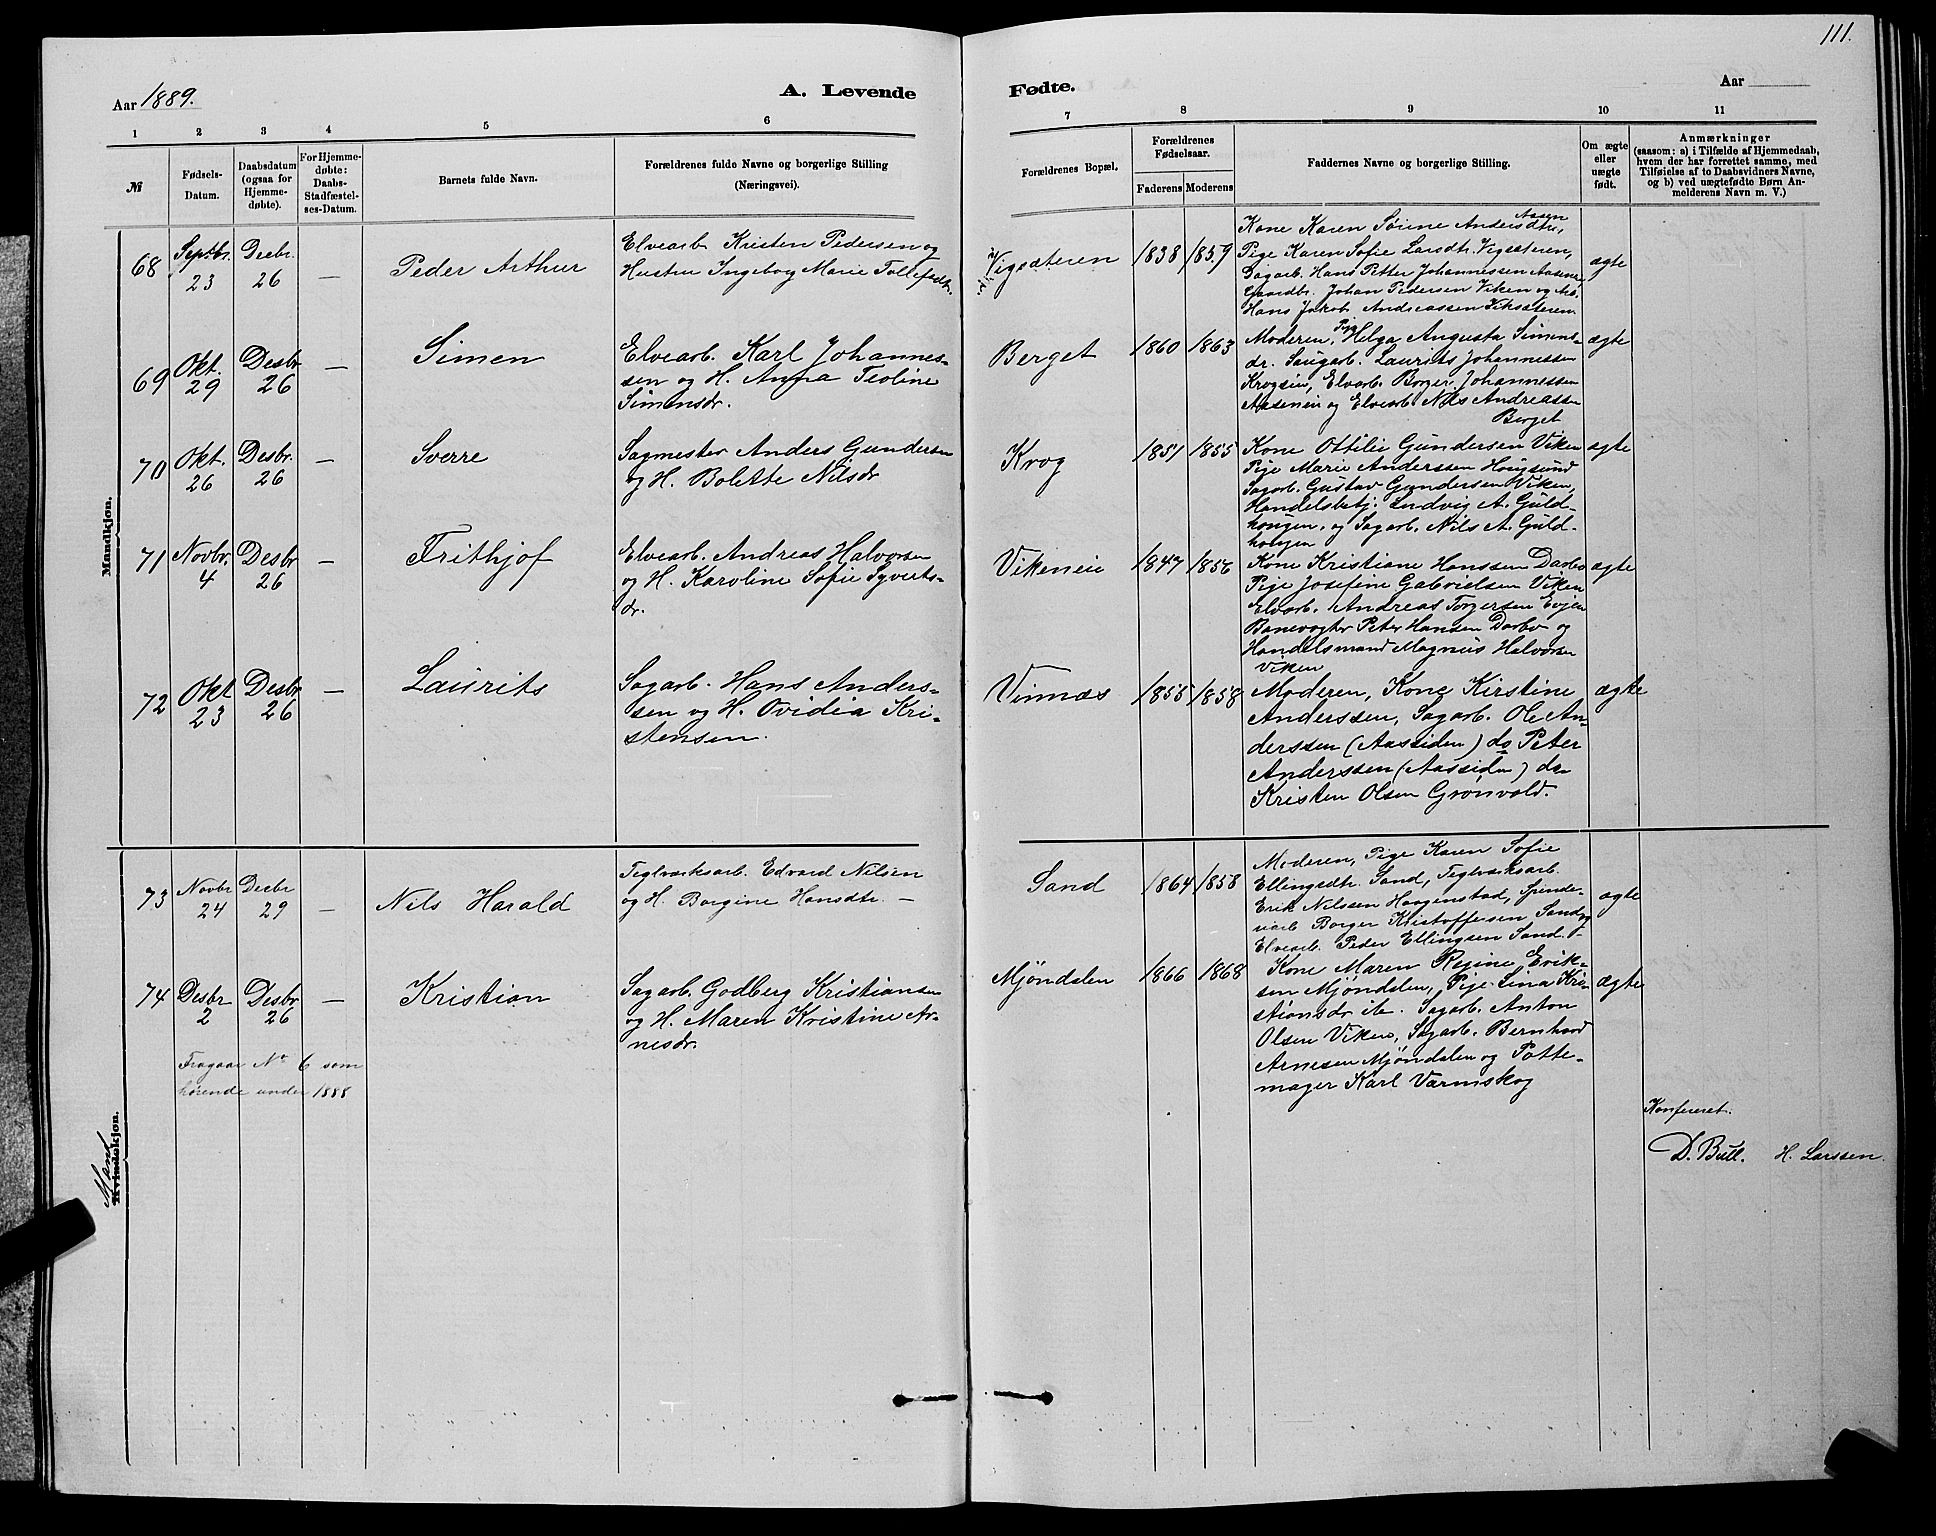 111.
Aar 1889.
A. Levende
Fødte.
Aar
1 2 3 4 5 6 7 8 9 10 11
№
Fødsels-
Datum.
Daabsdatum
(ogsaa for
Hjemme-
døbte).
For Hjemme-
døbte:
Daabs-
Stadfæstel-
ses-Datum.
Barnets fulde Navn.
Forældrenes fulde Navne og borgerlige Stilling
(Næringsvei).
Forældrenes Bopæl.
Forældrenes
Fødselsaar.
Faderens Moderens
Faddernes Navne og borgerlige Stilling.
Om ægte
eller
uægte
født.
Anmærkninger
(saasom: a) i Tilfælde af Hjemmedaab,
hvem der har forrettet samme, med
Tilføielse af to Daabsvidners Navne,
og b) ved uægtefødte Børn An-
melderens Navn m. V.)
Mandkjøn.
68
Septbr.
23
Decbr.
26
—
Peder Arthur
Elvearb. Kristen Pedersen og
Hustru Ingeborg Marie Tollefsdtr.
Vigsæteren
1838 1859
Aasen
Kone Karen Sørine Andersdtr,
Pige Karen Sofie Larsdtr. Vigsæteren,
Sagarb. Hans Petter Johannessen Aasen
Gaardbr. Johan Pedersen Viken og
Hans Jakob Andreassen Viksæteren
ægte
69
Okt.
29
Desbr
26
—
Simen
Elvearb. Karl Johannes-
sen og H. Anna Teoline
Simensdr.
Berget
1860 1863
Moderen, Pige Helga Augusta Simens-
dr. Saugarb. Laurits Johannessen
Krogsein, Elvarb. Borger Johannessen
Aaseneie og Elvearb. Nils Andreassen
Berget
ægte
70
Okt.
26
Desbr.
26
—
Sverre
Sagmester Anders Gundersen
og H. Bolette Nilsdr
Krog
1851 1855
Kone Ottilie Gundersen Viken
Pige Marie Anderssen Hougsund
Sagarb. Gustav Gundersen Viken,
Handelsbetj. Ludvig A. Guld-
hougen. og Sagarb. Nils A. Guld-
hougen
ægte
71
Novbr.
4
Desbr.
26
—
Frithjof
Elvearb. Andreas Halvorsen
og H. Karoline Sofie Syverts-
dr.
Vikeneie
1847 1856
Kone Kristiane Hanssen Darbo
Pige Josefine Gabrielsen Viken
Elvarb. Andreas Torgersen Evjen
Banevogter Peter Hansen Darbo og
Handelsmand Magnus Halvorsen
Viken
ægte
72
Okt
23
Desbr
26
—
Laurits
Sagarb. Hans Anders-
sen og H. Ovidia Kri-
stensen.
Vinnæs
1855 1858
Moderen, Kone Kirstine
Anderssen, Sagarb. Ole An-
derssen (Aassiden) do Peter
Anderssen (Aassiden) do
Kristen Olsen Grönvold.
ægte
73
Novbr
24
Decbr
29
—
Nils Harald
Teglværksarb. Edvard Nilsen
og H. Borgine Hansdtr. —
Sand
1864 1858
Moderen, Pige Karen Sofie
Ellingsdtr. Sand, Teglværksarb.
Erik Nilssen Haugenstad,
Borger Kristoffersen Sand og
Elvearb. Peder Ellingsen Sand.
ægte
74
Desbr
2
Desbr
26
—
Kristian
Sagarb. Godberg Kristiansen
og H. Maren Kristine Ar-
nesdr.
Mjøndalen
1866 1868
Kone Maren Regine Erik-
sen Mjøndalen, Pige Lina Kri-
stiansdr ib. Sagarb. Anton
Olsen Viken, Sagarb. Bernhard
Arnesen Mjøndalen og Potte-
mager Karl Varmskog
ægte
Fragaar No 6 som
hørende under 1888
Mand
Kvindekjøn.
Konfereret.
D. Bull. H. Larssen.